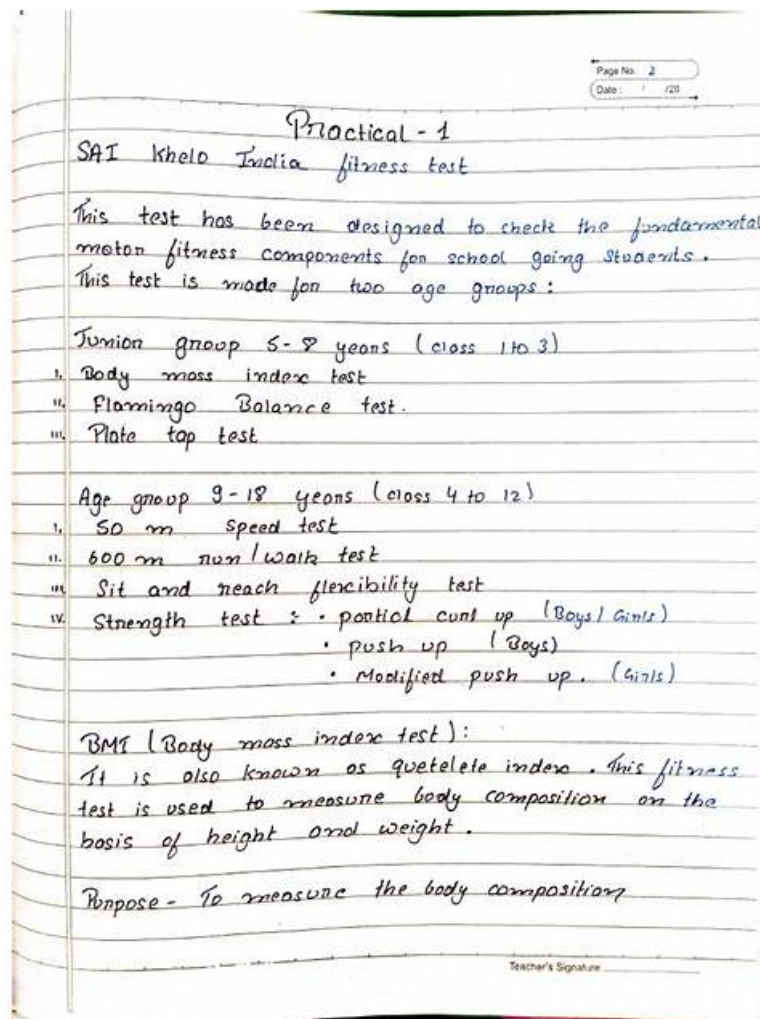 Page No. 2
Date : / /20
Practical - 1
SAI Khelo India fitness test
This test has been designed to check the fundamental
motor fitness components for school going students.
This test is made for two age groups :
Junior group 5-8 years (class 1 to 3)
I. Body mass index test
II. Flamingo Balance test.
III. Plate tap test
Age group 9-18 years (class 4 to 12)
I. 50 m speed test
II. 600 m run / walk test
III. Sit and reach flexibility test
IV. Strength test : • partial curl up (Boys / Girls)
• push up (Boys)
• Modified push up. (Girls)
BMI (Body mass index test) :
It is also known as quetelete index. This fitness
test is used to measure body composition on the
basis of height and weight.
Purpose - To measure the body composition
Teacher's Signature